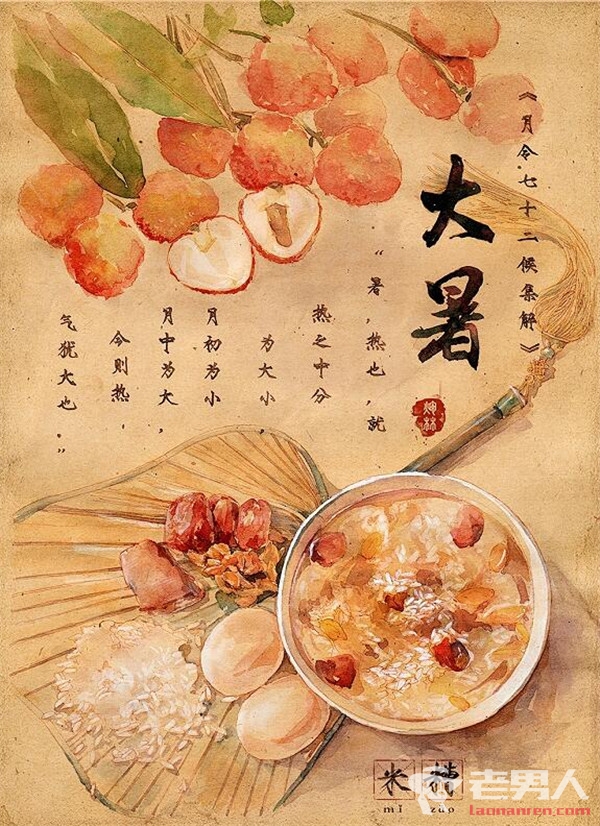 《月令.七十二候集解》
大暑
“暑,热也,就
热之中分
为大小,
月初为小,
月中为大,
今则热,
气犹大也."
米糟
mǐ zāo
老男人
laonanren.com